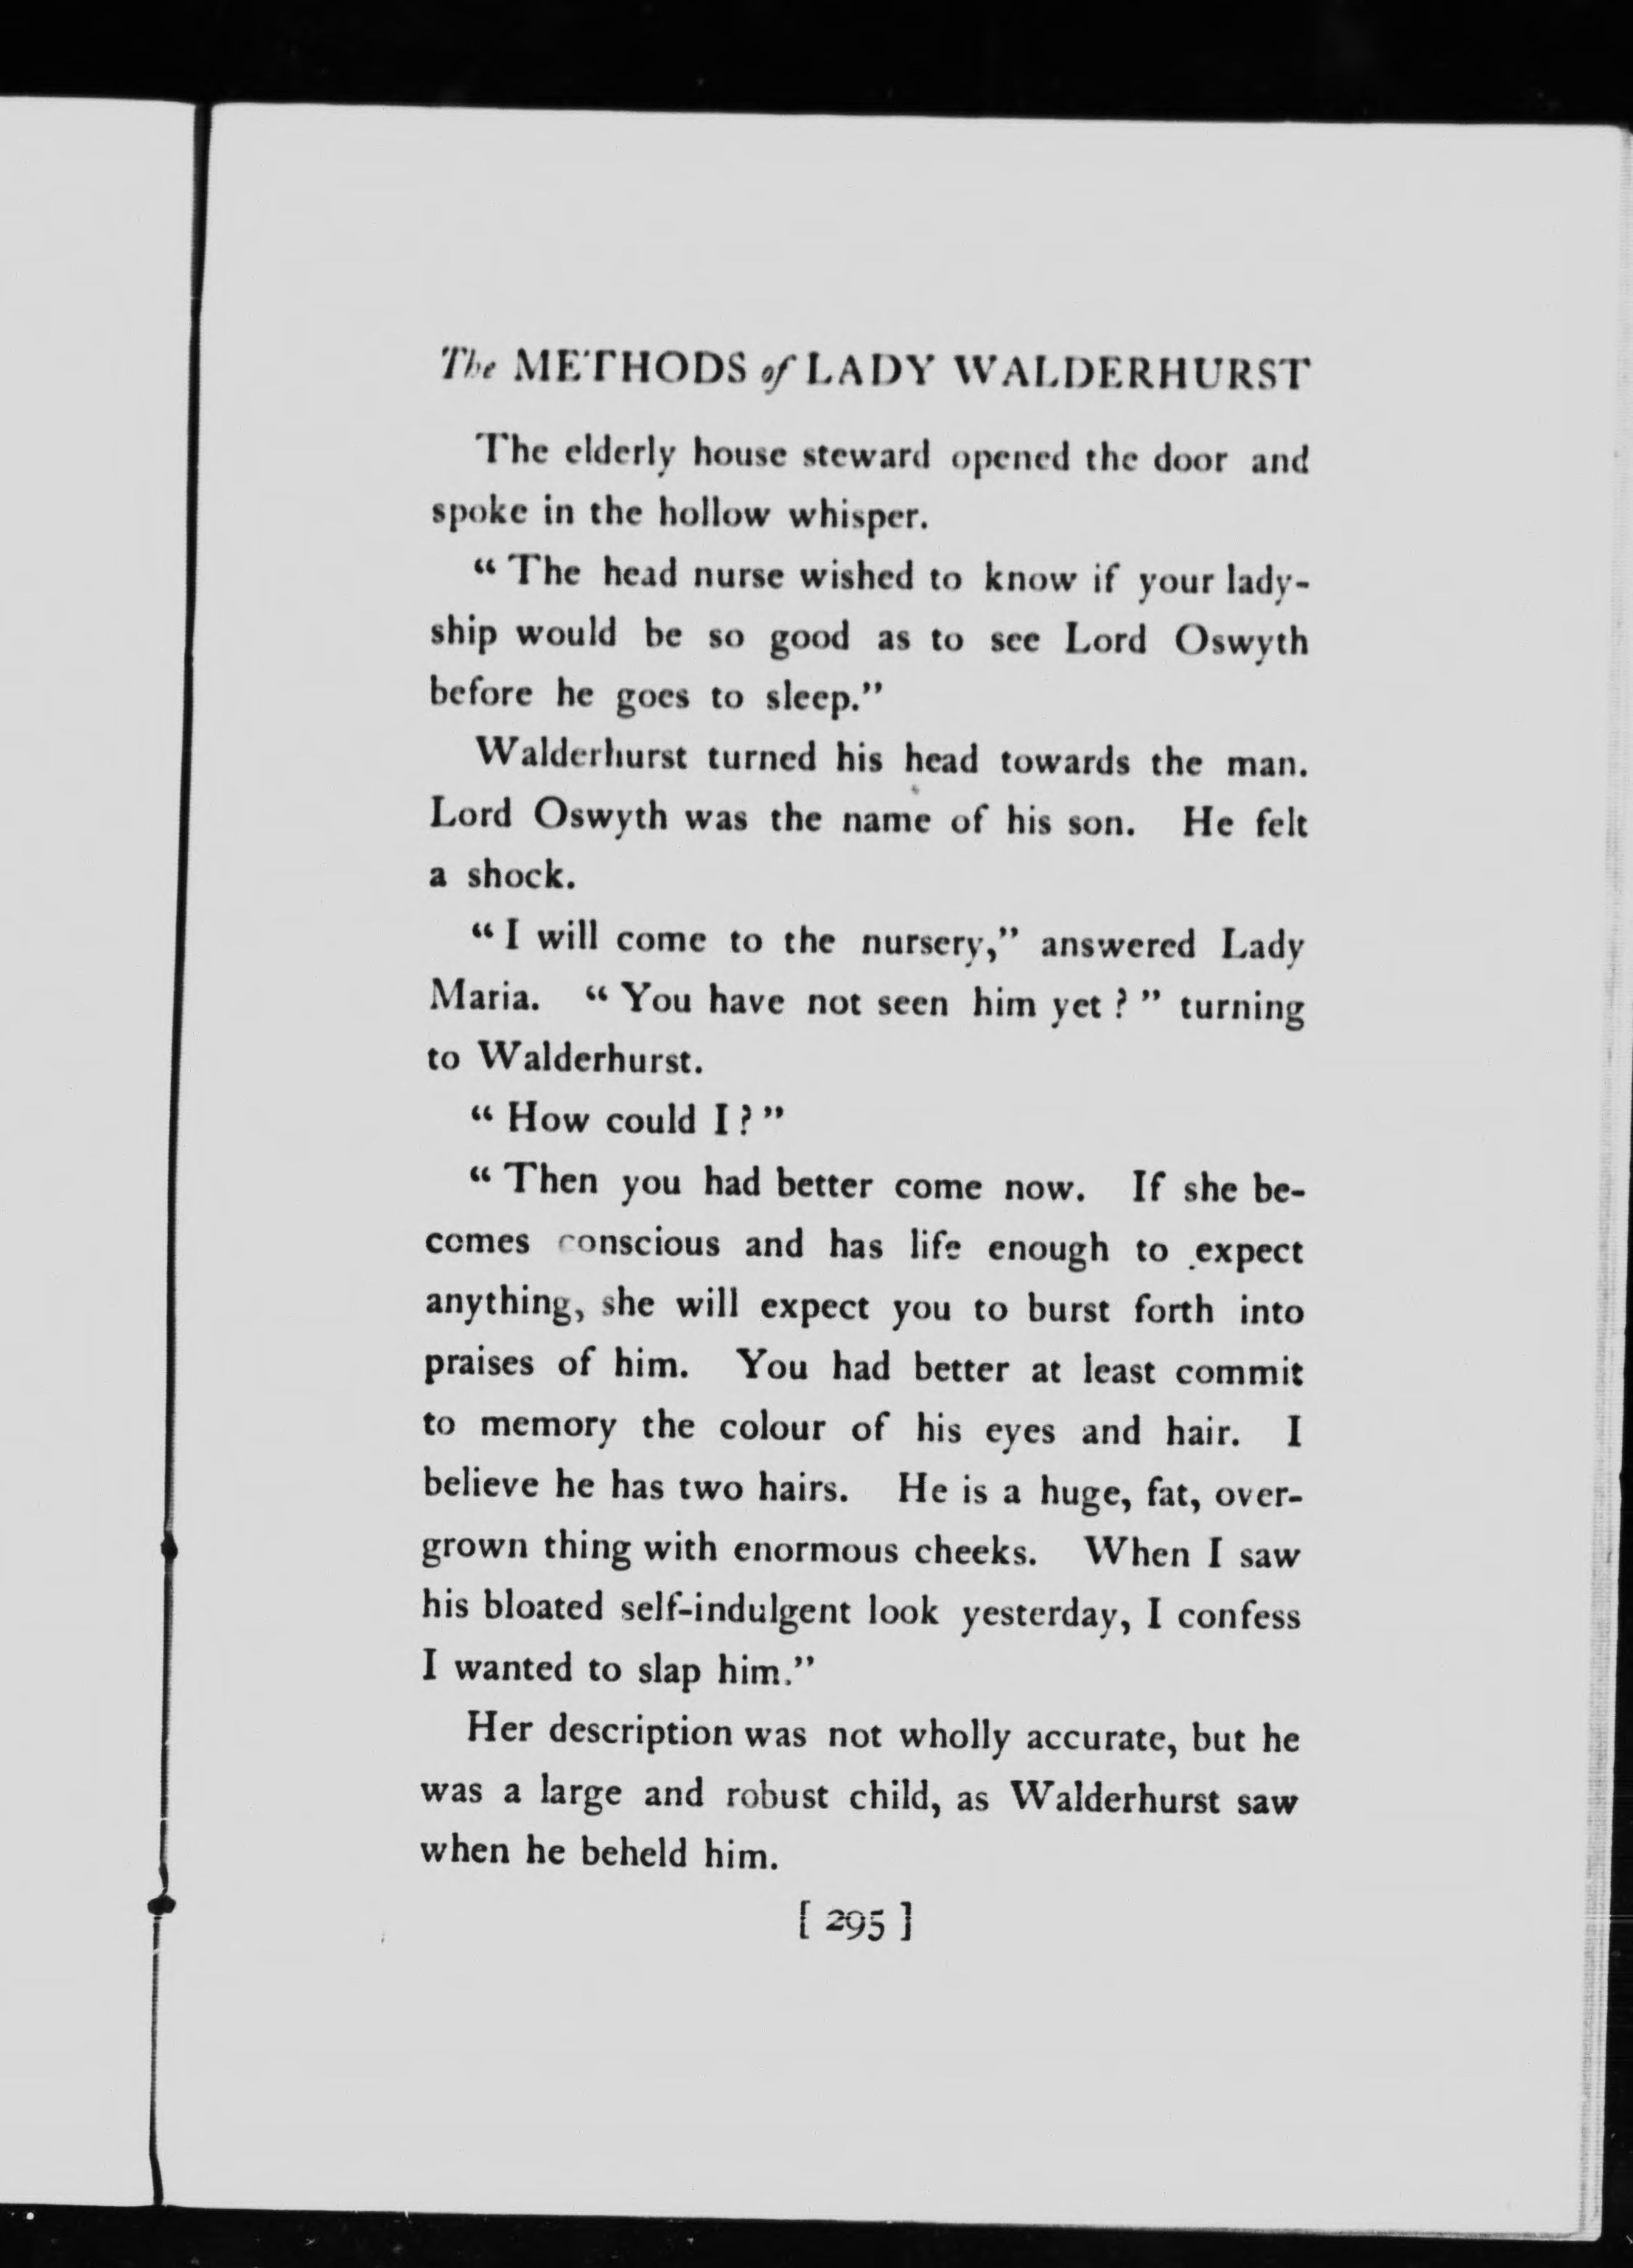 The METHODS of LADY WALDERHURST
The elderly house steward opened the door and
spoke in the hollow whisper.
“ The head nurse wished to know if your lady-
ship would be so good as to see Lord Oswyth
before he goes to sleep.”
Walderhurst turned his head towards the man.
Lord Oswyth was the name of his son. He felt
a shock.
“ I will come to the nursery,” answered Lady
Maria. “ You have not seen him yet ? ” turning
to Walderhurst.
“ How could I ? ”
“ Then you had better come now. If she be-
comes conscious and has life enough to expect
anything, she will expect you to burst forth into
praises of him. You had better at least commit
to memory the colour of his eyes and hair. I
believe he has two hairs. He is a huge, fat, over-
grown thing with enormous cheeks. When I saw
his bloated self-indulgent look yesterday, I confess
I wanted to slap him.”
Her description was not wholly accurate, but he
was a large and robust child, as Walderhurst saw
when he beheld him.
[ 295 ]